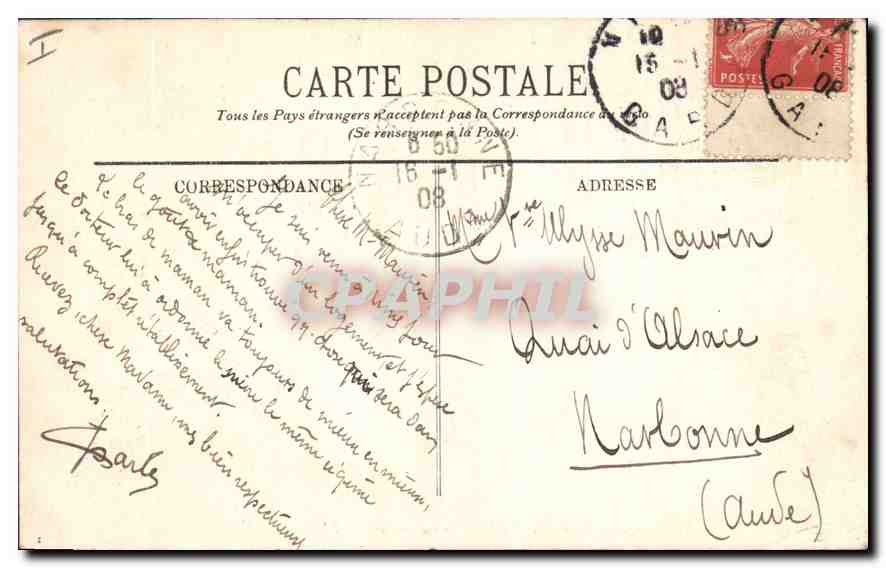 I
CARTE POSTALE
Tous les Pays étrangers n'acceptent pas la Correspondance au recto
(Se renseigner à la Poste).
CORRESPONDANCE
ADRESSE
NARBONNE
8 50
16 -1
08
AUDE
15 -1
08
GARD
POSTES
FRANÇAISE
Chère Me Mauvin
Je suis venu à Nîmes pour
m'occuper d'un logement et j'espère
avoir enfin trouvé qq chose qui sera dans
le goût de maman.
Le bras de maman va toujours de mieux en mieux,
le docteur lui a ordonné le même régime
jusqu'à complet rétablissement.
Recevez, chère Madame, mes bien respectueuses
salutations
Mme Vve Ulysse Mauvin
Quai d'Alsace
Narbonne
(Aude)
CPAPHIL